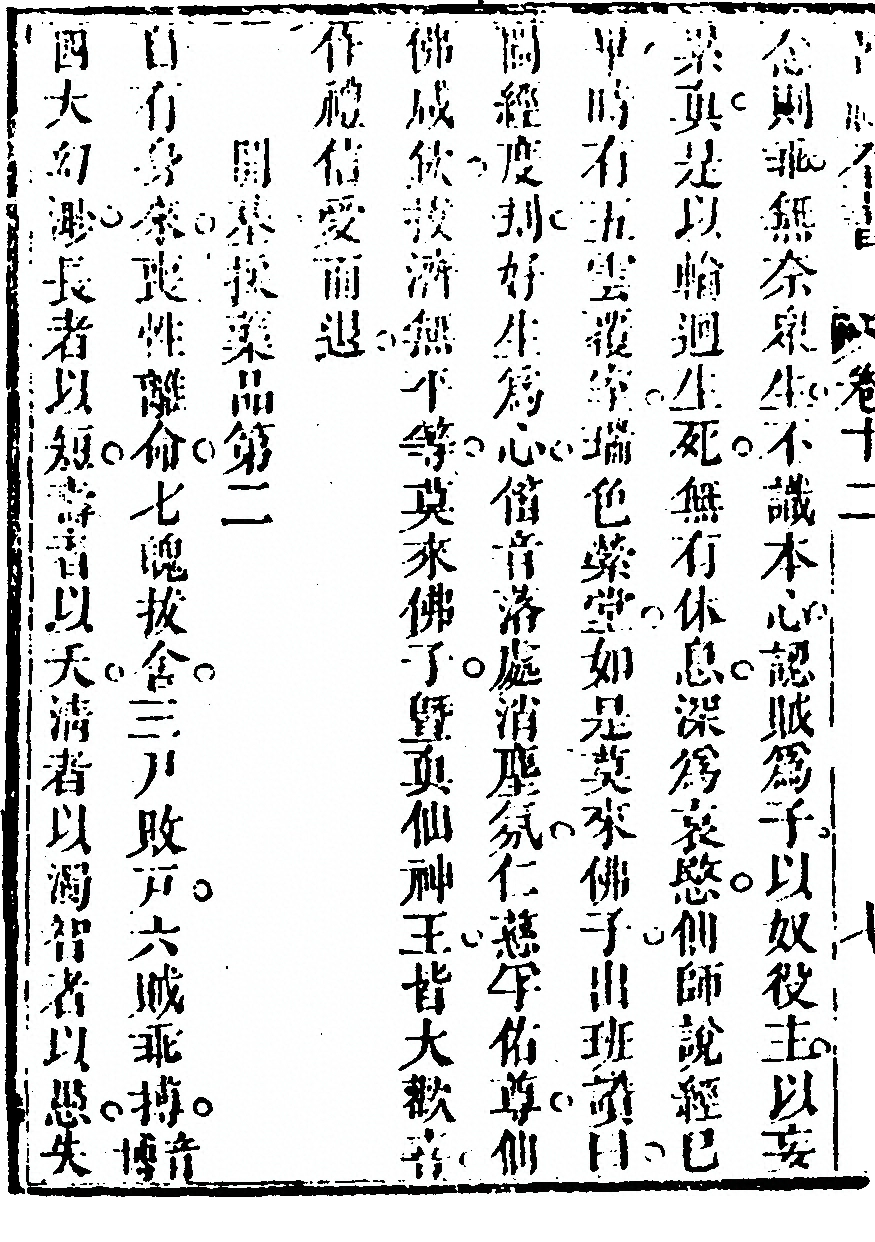 卷十二
念則乖無奈衆生不識本心認賊爲子以奴役主以妄
累真是以輪迴生死無有休息深爲哀愍仙師說經已
畢時有五雲覆室瑞色縈堂如是莫來佛子出班讃曰
開經度刼好生爲心偕音落處消壓氛仁慈罕佑尊仙
佛成欽拔濟無不等莫來佛子曁真仙神王皆大歡喜
作禮信愛而退
開基採藥品第二
自有身來喪性離命七魄拔舍三尸敗戸六賊乖搏音博
四大幻渺長者以短壽者以夭清者以濁智者以愚失